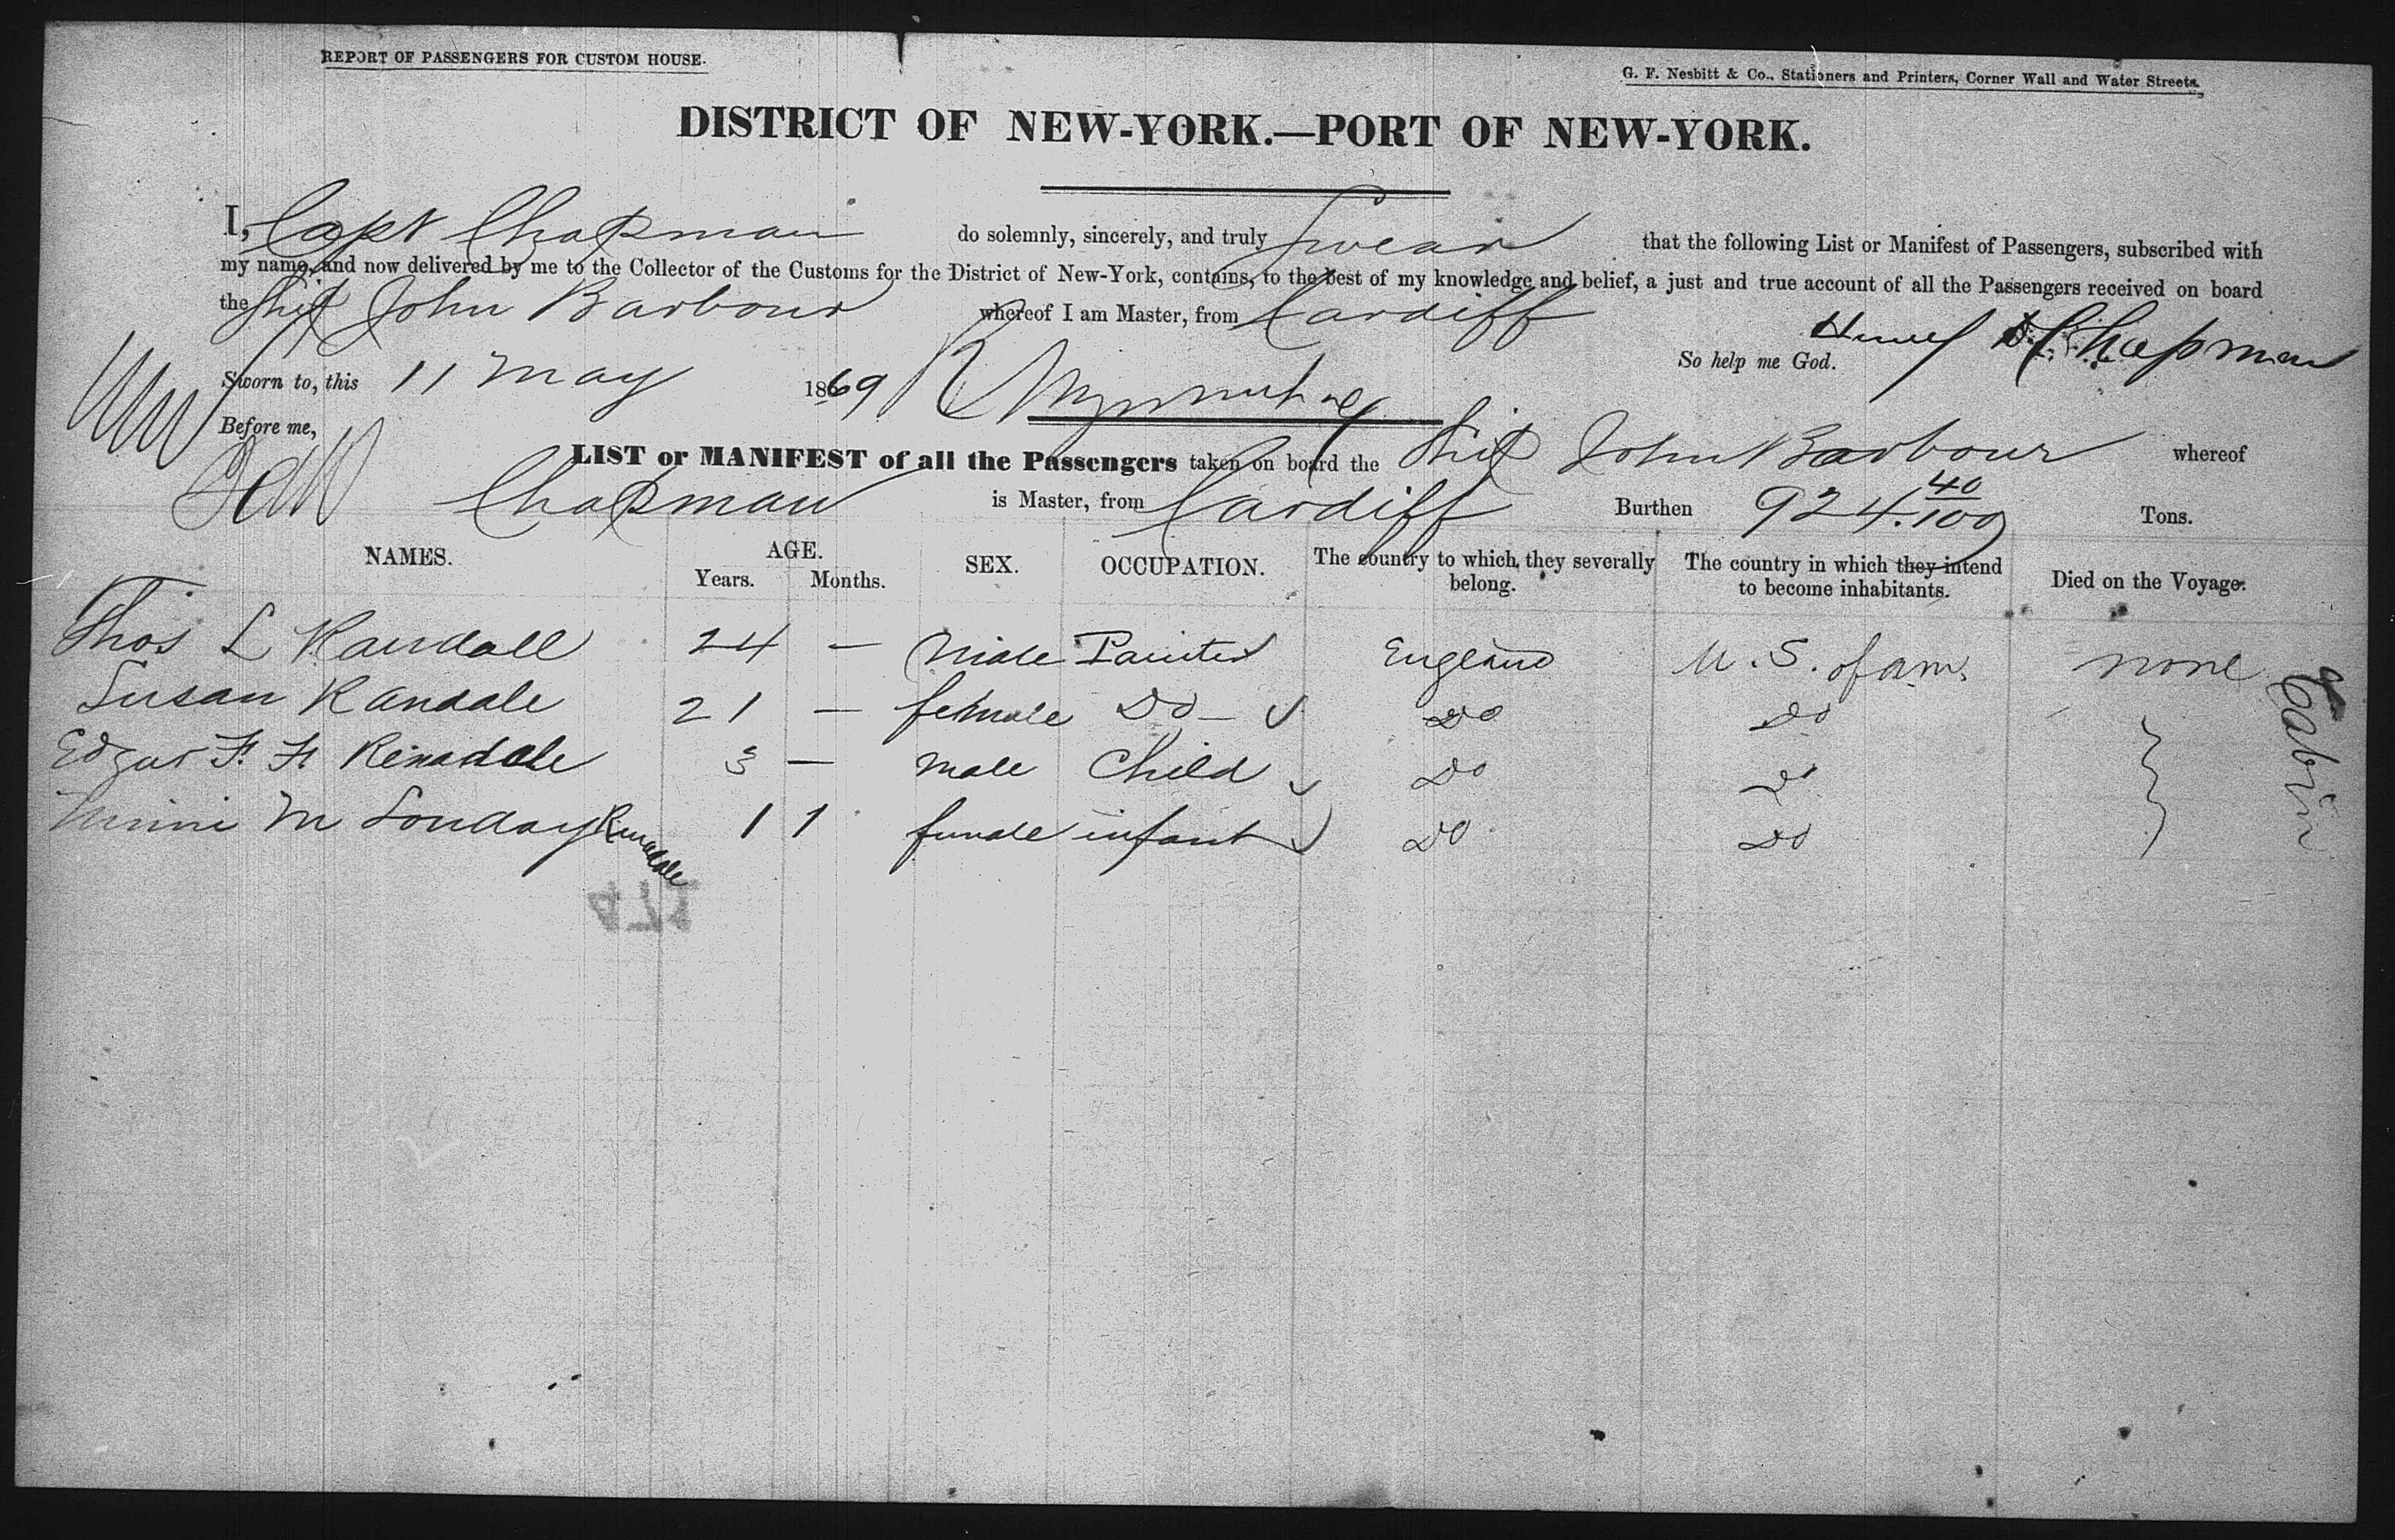 REPORT OF PASSENGERS FOR CUSTOM HOUSE.
G. F. Nesbitt & Co., Stationers and Printers, Corner Wall and Water Streets.
DISTRICT OF NEW-YORK.—PORT OF NEW-YORK.
I, Capt Chapman do solemnly, sincerely, and truly Swear that the following List or Manifest of Passengers, subscribed with
my name, and now delivered by me to the Collector of the Customs for the District of New-York, contains, to the best of my knowledge and belief, a just and true account of all the Passengers received on board
the Ship John Barbour whereof I am Master, from Cardiff
Chapman
So help me God.
Sworn to, this 11 May 1869
Before me,
LIST or MANIFEST of all the Passengers taken on board the Ship John Barbour whereof
Chapman is Master, from Cardiff Burthen 924.40/100 Tons.
NAMES. AGE. Years. Months. SEX. OCCUPATION. The country to which they severally belong. The country in which they intend to become inhabitants. Died on the Voyage.
Thos L Randall 24 — Male Painter England U. S. of am. none
Susan Randale 21 — female Do — Do Do
Edgar F. F. Randale 3 — male Child Do Do
Minni M Londay Randale 1 1 female infant Do Do
Cabin